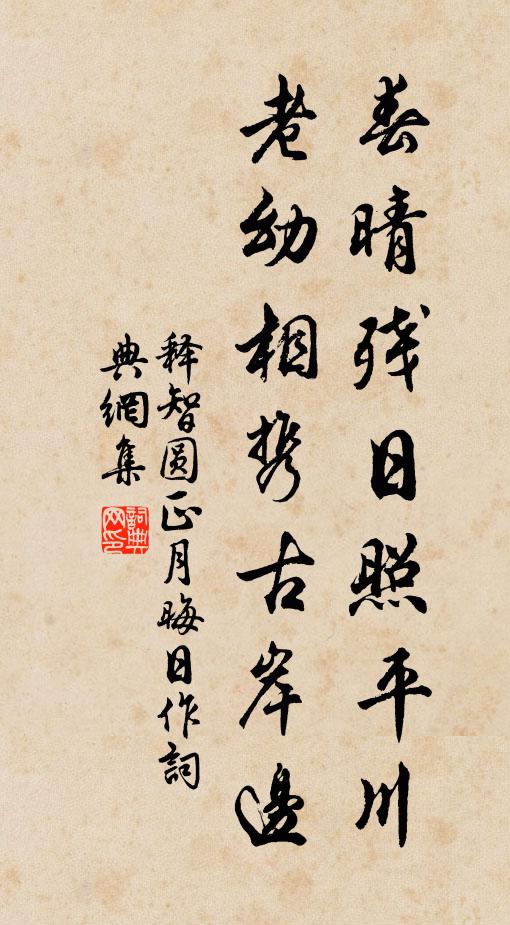 春晴残日照平川
老幼相携古岸邊
释智圆正月晦日作詞
典網集
詞典網印